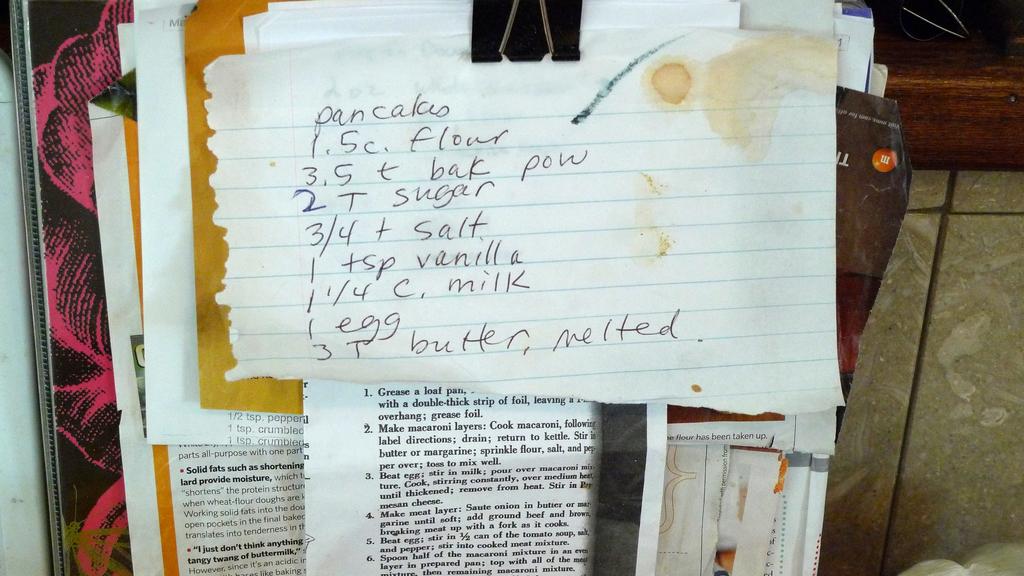 pancakes
1.5c. flour
3.5 t bak pow
2 T sugar
3/4 t salt
1 tsp vanilla
1 1/4 c. milk
1 egg
3 T butter, melted.
1. Grease a loaf pan,
with a double-thick strip of foil, leaving a
overhang; grease foil.
2. Make macaroni layers: Cook macaroni, following
label directions; drain; return to kettle. Stir in
butter or margarine; sprinkle flour, salt, and
per over; toss to mix well.
3. Beat egg; stir in milk; pour over macaroni
ture. Cook, stirring constantly, over medium heat,
until thickened; remove from heat. Stir in
mesan cheese.
4. Make meat layer: Saute onion in butter or
garine until soft; add ground beef and brown,
breaking meat up with a fork as it cooks.
5. Beat egg; stir in ½ can of the tomato soup, salt,
and pepper; stir into cooked meat mixture.
6. Spoon half of the macaroni mixture in an even
layer in prepared pan; top with all of the meat
mixture, then remaining macaroni mixture.
1/2 tsp. pepper
1 tsp. crumbled
1 tsp. crumbled
parts all-purpose with one part
• Solid fats such as shortening
lard provide moisture, which
"shortens" the protein
when wheat-flour doughs are
Working solid fats into the
open pockets in the final baked
translates into tenderness in
• "I just don't think anything
tangy twang of buttermilk,"
However, since it's an acidic
bases like baking
flour has been taken up.